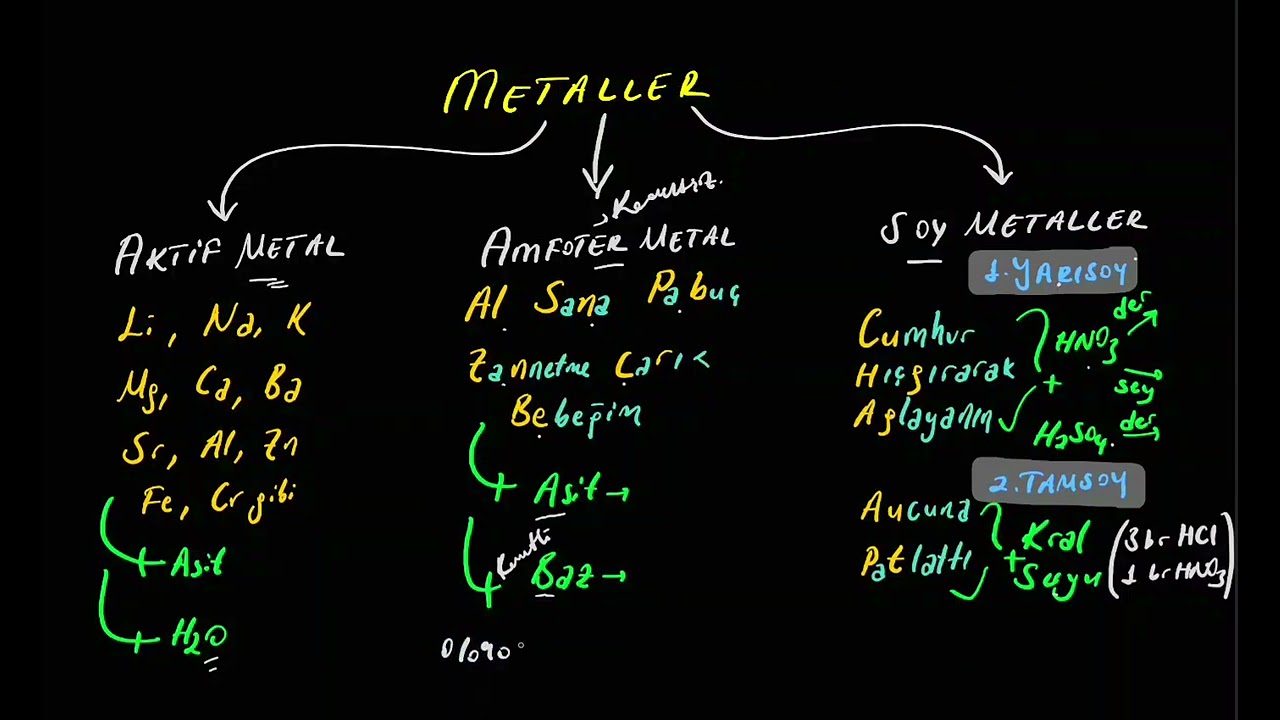 METALLER
AKTİF METAL
Li, Na, K
Mg, Ca, Ba
Sr, Al, Zn
Fe, Cr gibi
+ Asit
+ H₂O
AMFOTER METAL
Al Sana Pabuç
Zannetme Carık
Bebeğim
+ Asit →
+ Baz →
%90
SOY METALLER
1. YARISOY
Cumhur
Hıçgırarak
Aglayanın
+
HNO₃ der
sey
H₂SO₄ der
2. TAMSOY
Aucuna
Patlattı
+ Kral Suyu
(3 br HCl
1 br HNO₃)